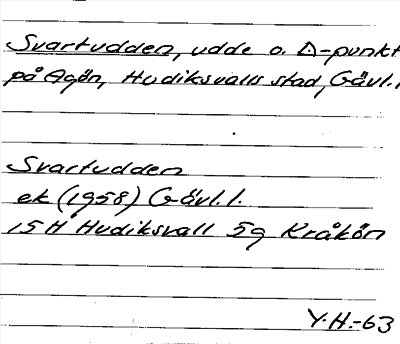 Svartudden, udde o. Δ-punkt
på Agön, Hudiksvalls stad, Gävl.l
Svartudden
ek (1958) Gävl.l.
15H Hudiksvall 5g Kråkön
Y.H.-63